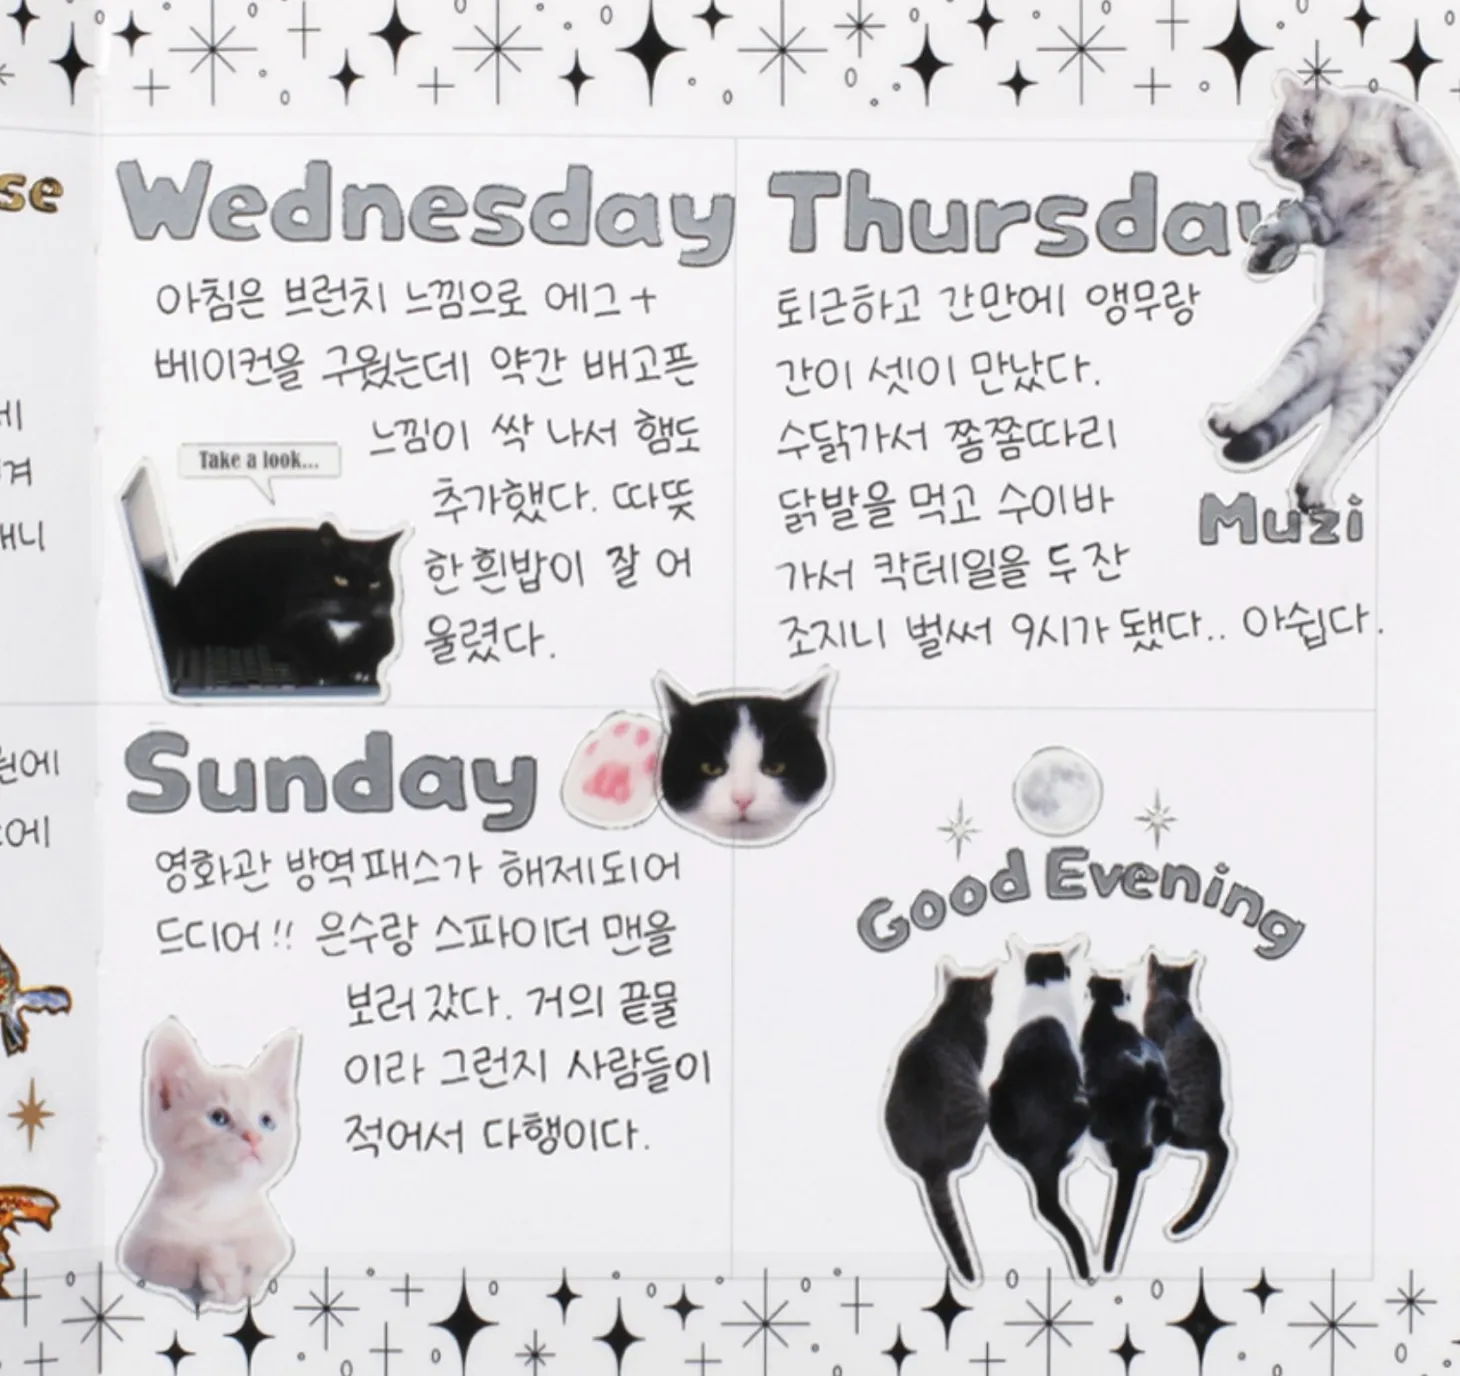 se
Wednesday
아침은 브런치 느낌으로 에그+
베이컨을 구웠는데 약간 배고픈
느낌이 싹 나서 햄도
추가했다. 따뜻
한 흰밥이 잘 어
울렸다.
Take a look...
Thursday
퇴근하고 간만에 앵무랑
간이 셋이 만났다.
수닭가서 쫌쫌따리
닭발을 먹고 수이바
가서 칵테일을 두 잔
조지니 벌써 9시가 됐다.. 아쉽다.
Muzi
Sunday
영화관 방역패스가 해제되어
드디어!! 은수랑 스파이더 맨을
보러 갔다. 거의 끝물
이라 그런지 사람들이
적어서 다행이다.
Good Evening